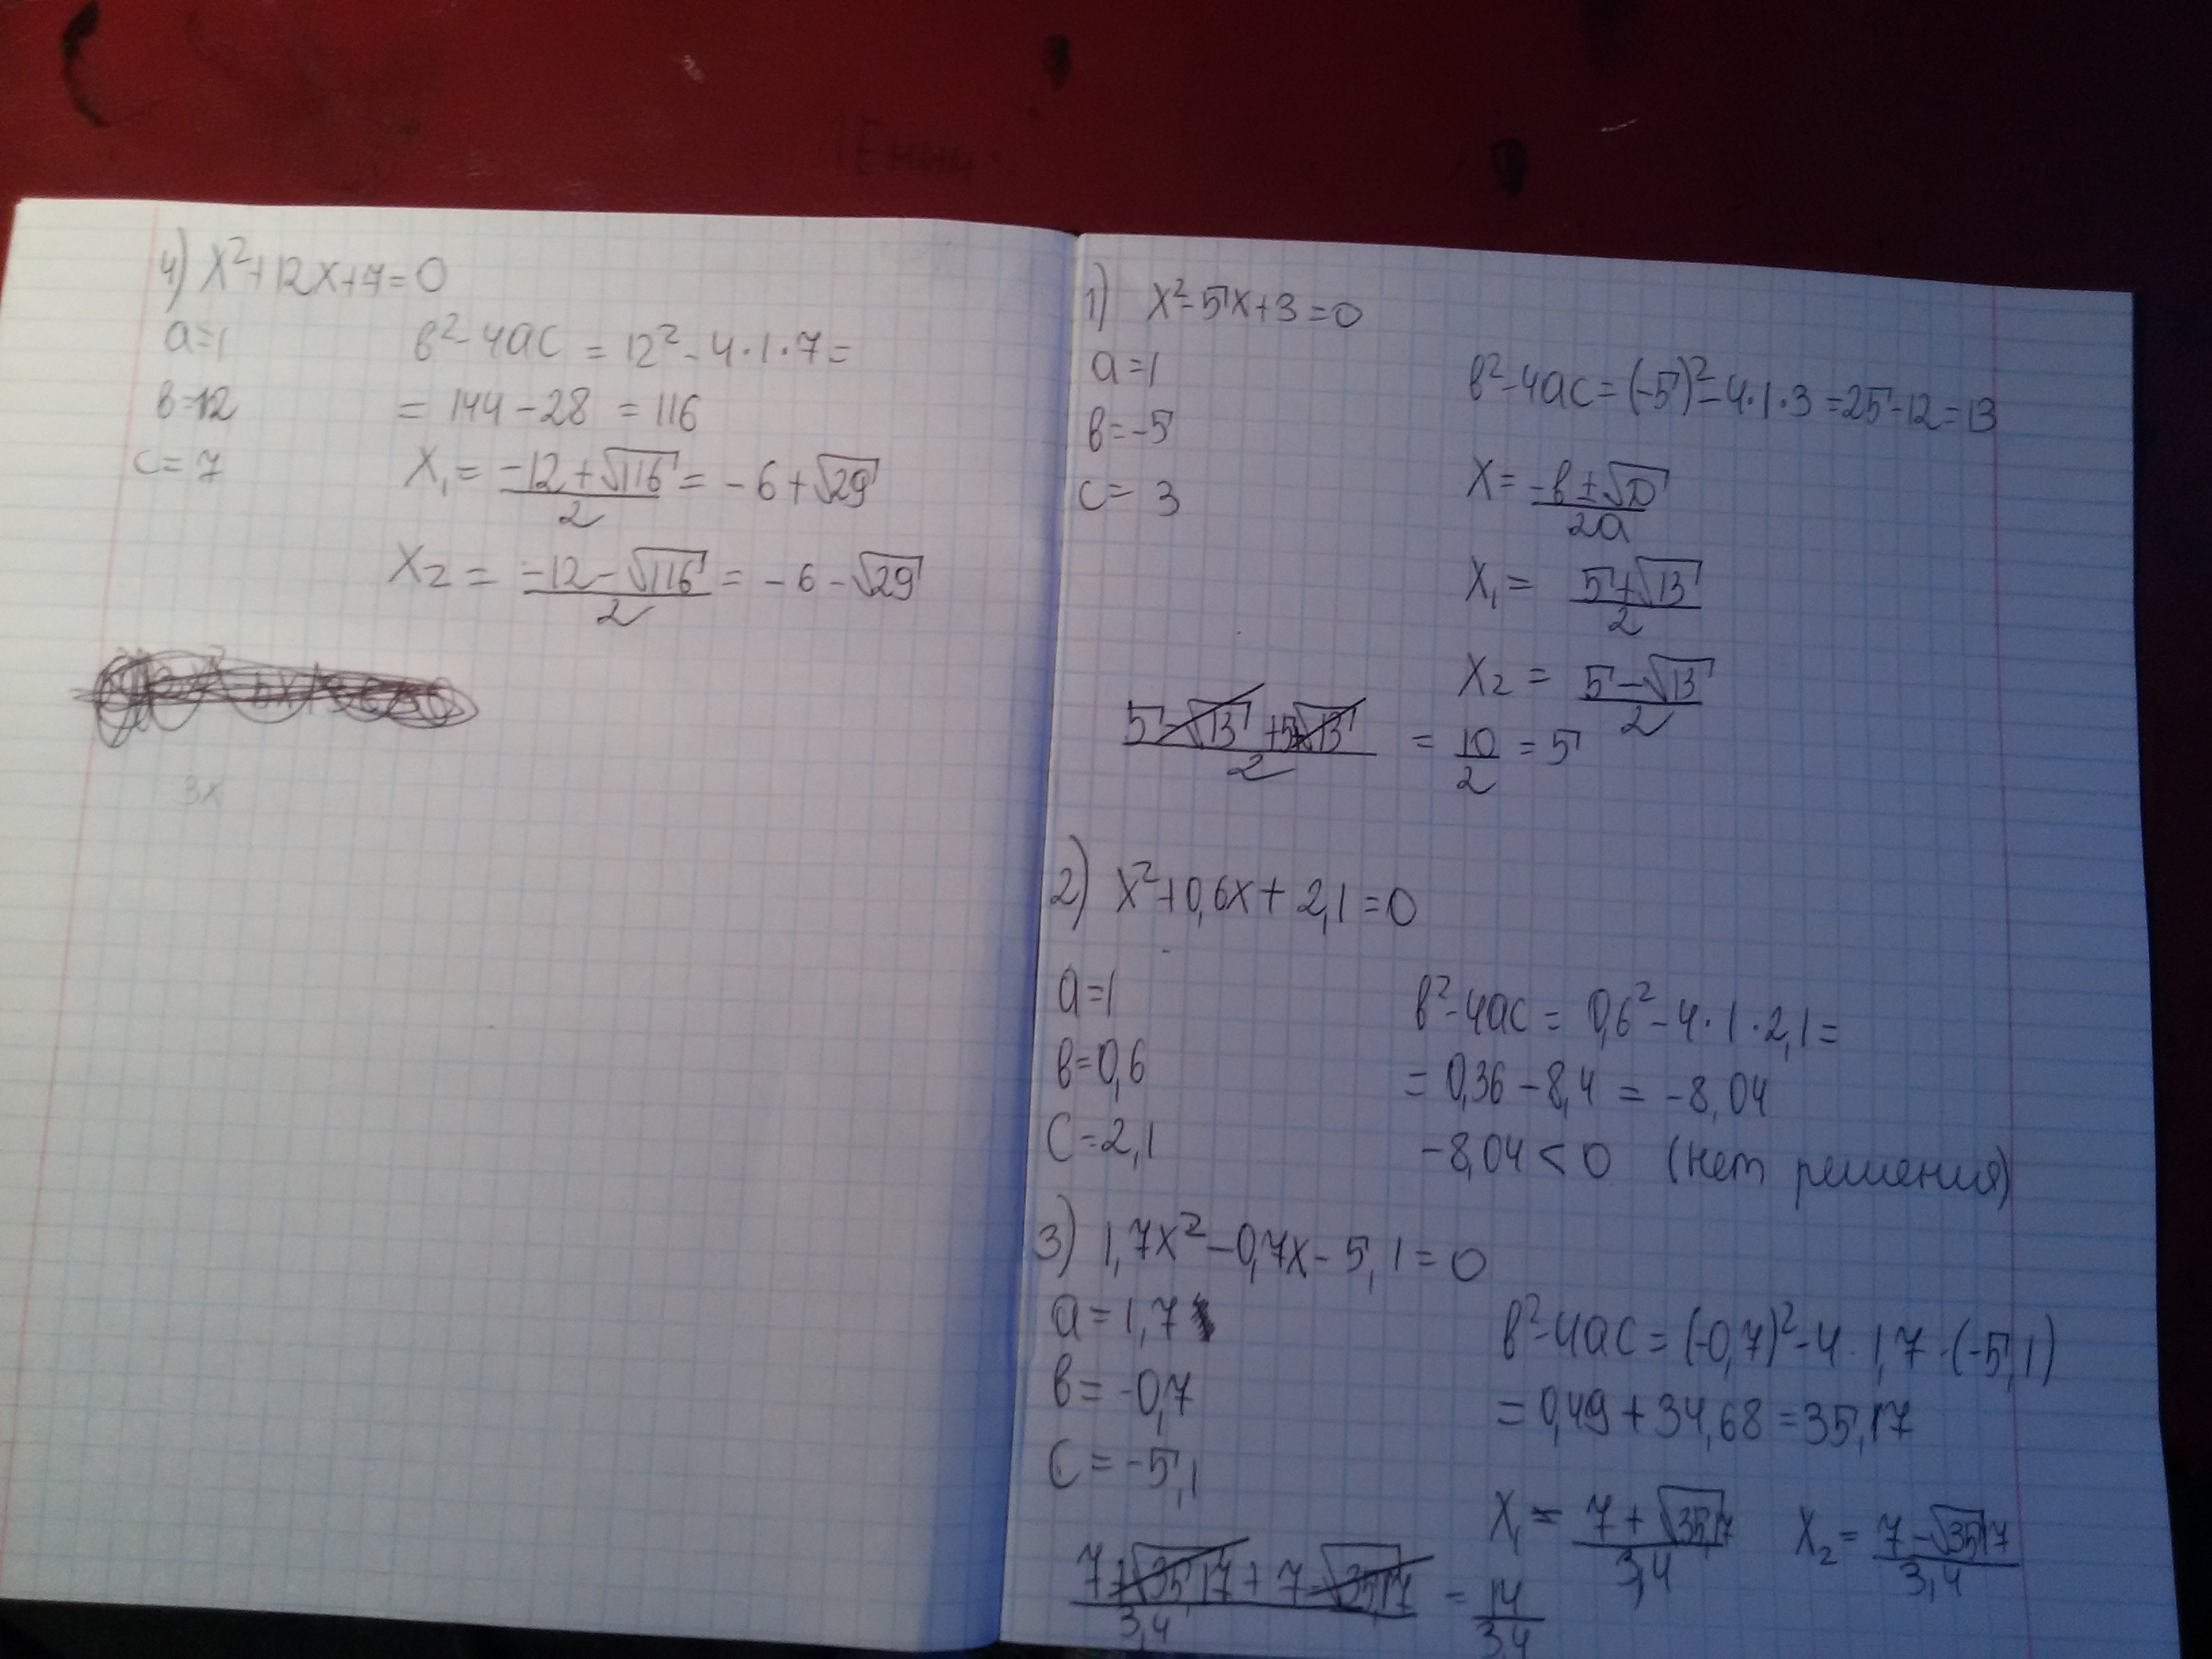 4) x²+12x+7=0
a=1
в²-4ac = 12² - 4·1·7=
в=12
= 144-28 = 116
c=7
x₁ = (-12+√116)/2 = -6+√29
x₂ = (-12-√116)/2 = -6-√29
3x
1) x²-5x+3=0
a=1
в²-4ac=(-5)²-4·1·3=25-12=13
в=-5
x= (-в±√D)/2a
c= 3
x₁= (5+√13)/2
x₂= (5-√13)/2
(5-√13+5+√13)/2 = 10/2 =5
2) x²+0,6x+2,1=0
a=1
в²-4ac= 0,6²-4·1·2,1=
в=0,6
= 0,36-8,4 = -8,04
c=2,1
-8,04<0 (нет решения)
3) 1,7x²-0,7x-5,1=0
a=1,7
в²-4ac=(-0,7)²-4·1,7·(-5,1)
в= -0,7
= 0,49+34,68=35,17
c=-5,1
x₁= (7+√35,17)/3,4 x₂= (7-√35,17)/3,4
(7+√35,17+7-√35,17)/3,4 = 14/3,4